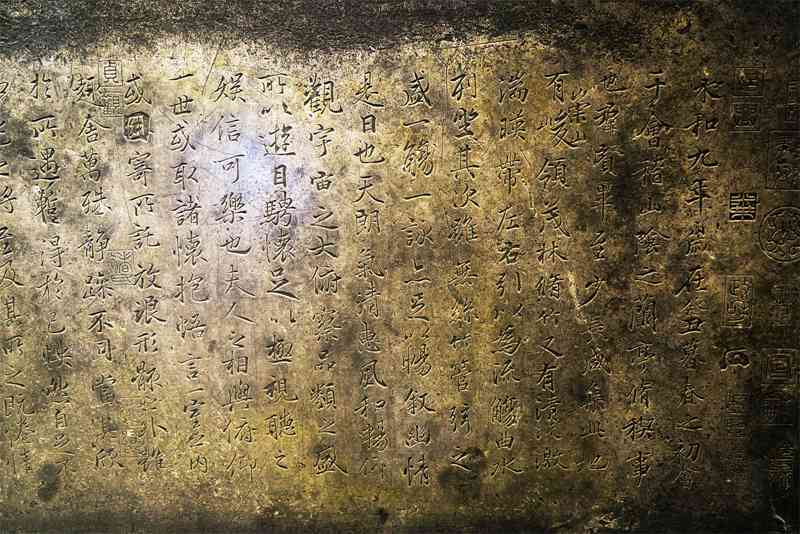 永和九年歲在癸丑暮春之初會
于會稽山陰之蘭亭脩禊事
也羣賢畢至少長咸集此地
有崇山峻領茂林脩竹又有清流激
湍暎帶左右引以為流觴曲水
列坐其次雖無絲竹管弦之
盛一觴一詠亦足以暢叙幽情
是日也天朗氣清惠風和暢仰
觀宇宙之大俯察品類之盛
所以遊目騁懷足以極視聽之
娛信可樂也夫人之相與俯仰
一世或取諸懷抱悟言一室之內
或因寄所託放浪形骸之外雖
趣舍萬殊靜躁不同當其欣
於所遇蹔得於己怏然自足不
老之將至及其所之既惓情
貞觀